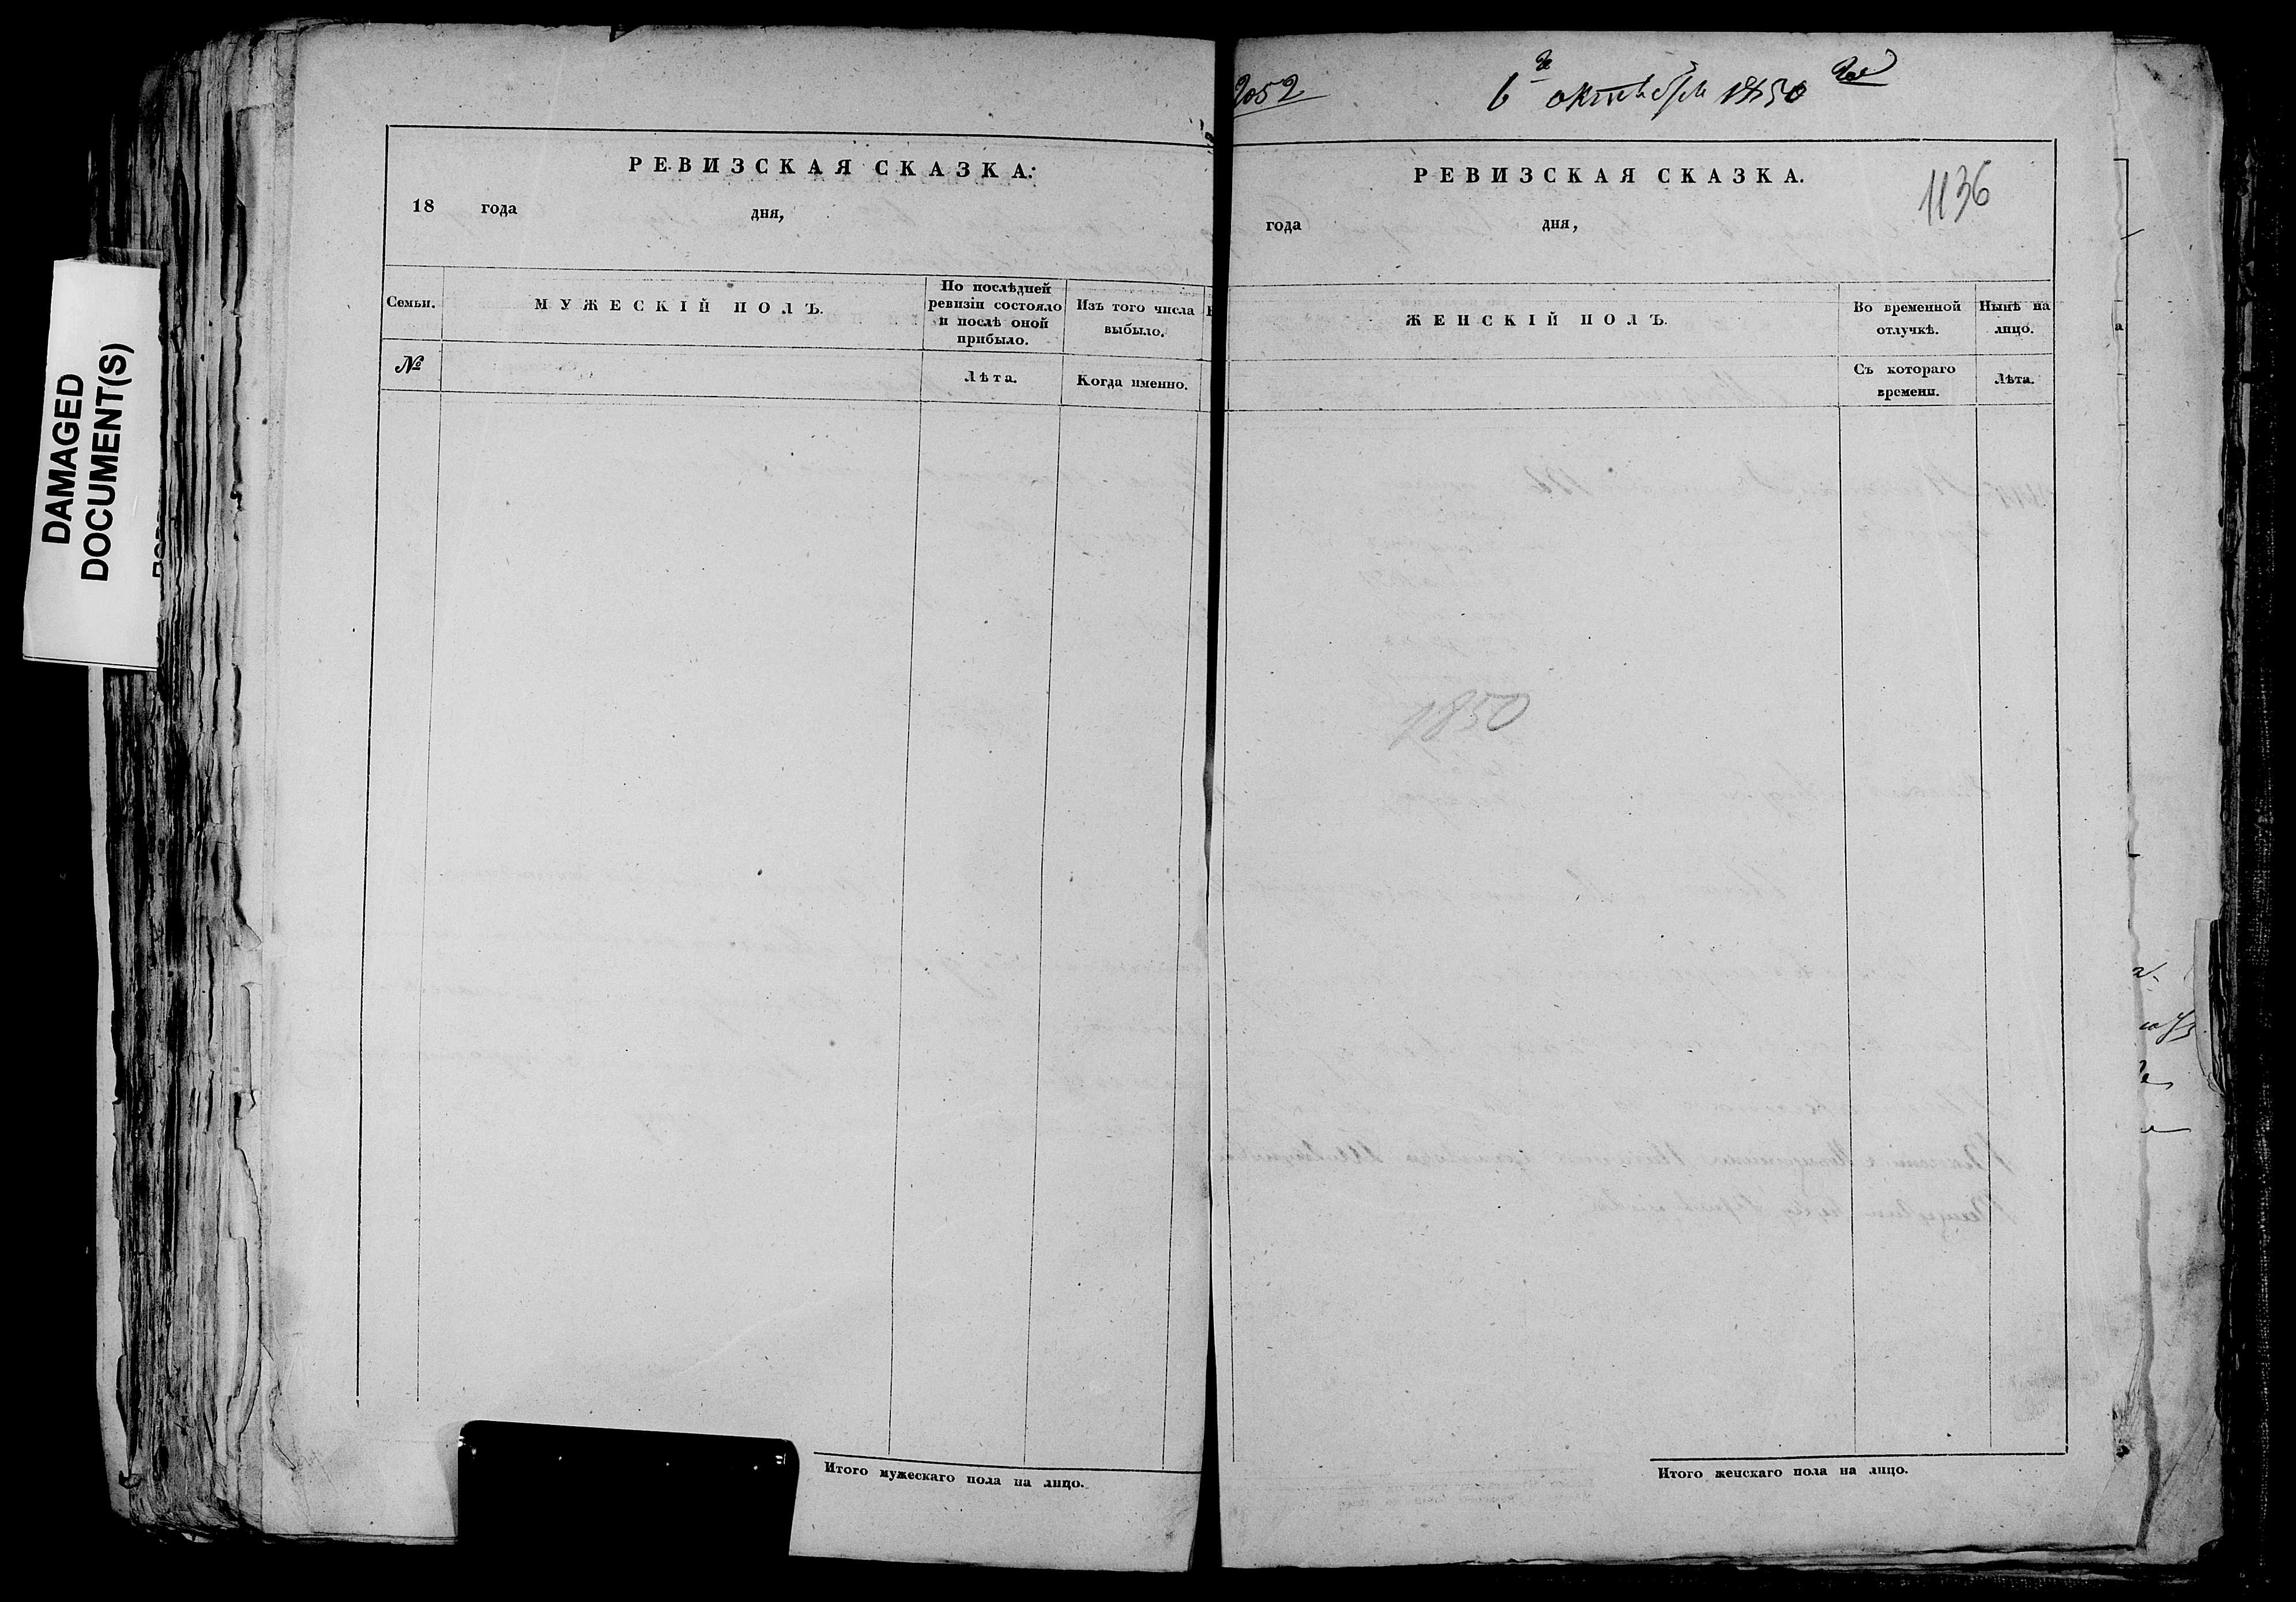 DAMAGED
DOCUMENT(S)
РЕВИЗСКАЯ СКАЗКА.
18 года дня,
Семьи.
МУЖЕСКІЙ ПОЛЪ.
По послѣдней
ревизіи состояло
и послѣ оной
прибыло.
Изъ того числа
выбыло.
№
Лѣта.
Когда именно.
Итого мужескаго пола на лицо.
2052
6го октября 1850 года
РЕВИЗСКАЯ СКАЗКА.
1136
года дня,
ЖЕНСКІЙ ПОЛЪ.
Во временной
отлучкѣ.
Нынѣ на
лицо.
Съ котораго
времени.
Лѣта.
1850
Итого женскаго пола на лицо.